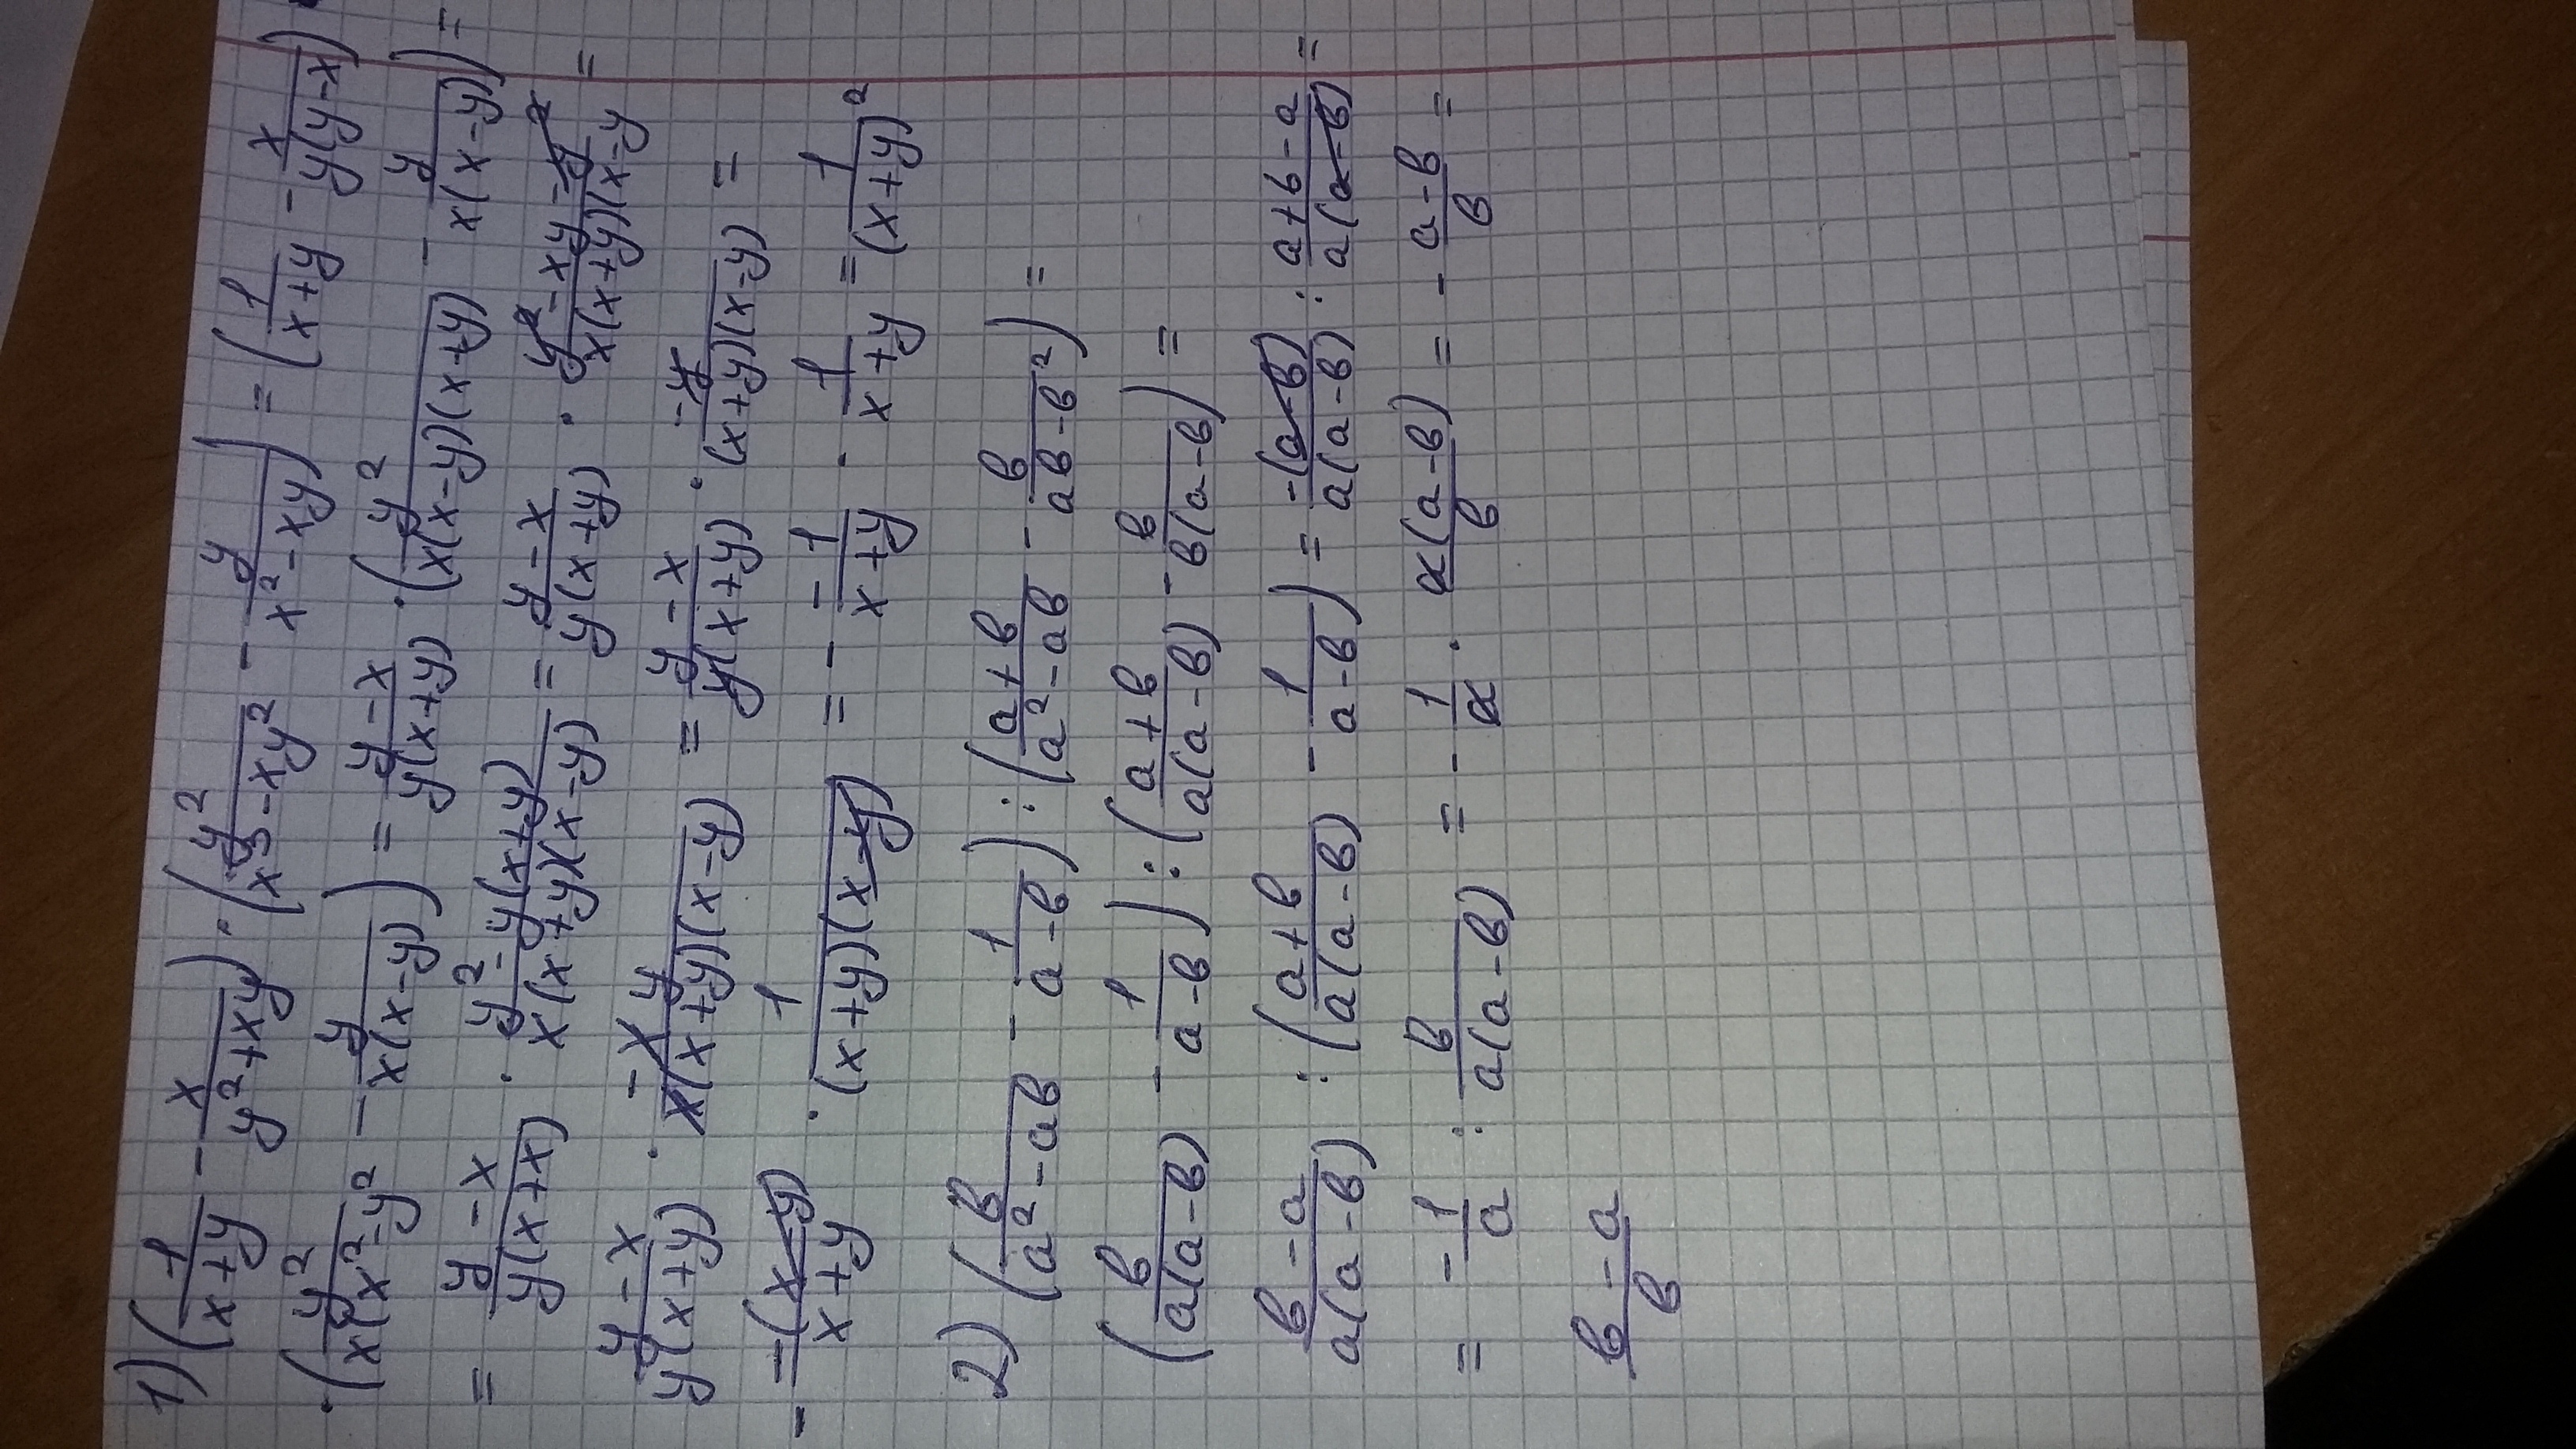 1) (1/(x+y) - x/(y²+xy)) · (y²/(x³-xy²) - y/(x²-xy)) = (1/(x+y) - x/(y(y-x))) ·
· (y²/(x(x²-y²) - y/(x(x-y))) = (y-x)/(y(x+y)) · (y²/(x(x-y)(x+y)) - y/(x(x-y))) =
= (y-x)/(y(x+x)) · (y²-y(x+y))/(x(x+y)(x-y)) = (y-x)/(y(x+y)) · (y²-xy-y²)/(x(x+y)(x-y) =
(y-x)/(y(x+y)) · (-xy)/(x(x+y)(x-y)) = (y-x)/(y(x+y)) · (-y)/((x+y)(x-y)) =
- (-(x-y))/(x+y) · 1/((x+y)(x-y)) = - (-1)/(x+y) · 1/(x+y) = 1/(x+y)²
2) (b/(a²-ab) - 1/(a-b)) : ((a+b)/(a²-ab) - b/(ab-b²)) =
(b/(a(a-b)) - 1/(a-b)) : ((a+b)/(a(a-b)) - b/(b(a-b))) =
(b-a)/(a(a-b)) : ((a+b)/(a(a-b)) - 1/(a-b)) = (-(a-b))/(a(a-b)) : (a+b-a)/(a(a-b)) =
= -1/a : b/(a(a-b)) = - 1/a · a(a-b)/b = - (a-b)/b =
(b-a)/b